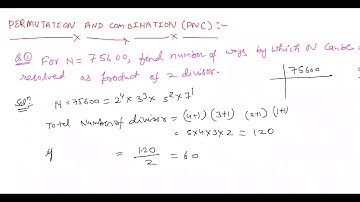 PERMUTATION AND COMBINATION (PNC):-
Q① For N= 75600, find number of ways by which N can be
resolved as product of 2 divisor.
75600
Solⁿ N = 75600 = 2⁴ x 3³ x 5² x 7¹
Total Number of divisor = (4+1) (3+1) (2+1) (1+1)
= 5x4x3x2 = 120
= 120/2 = 60